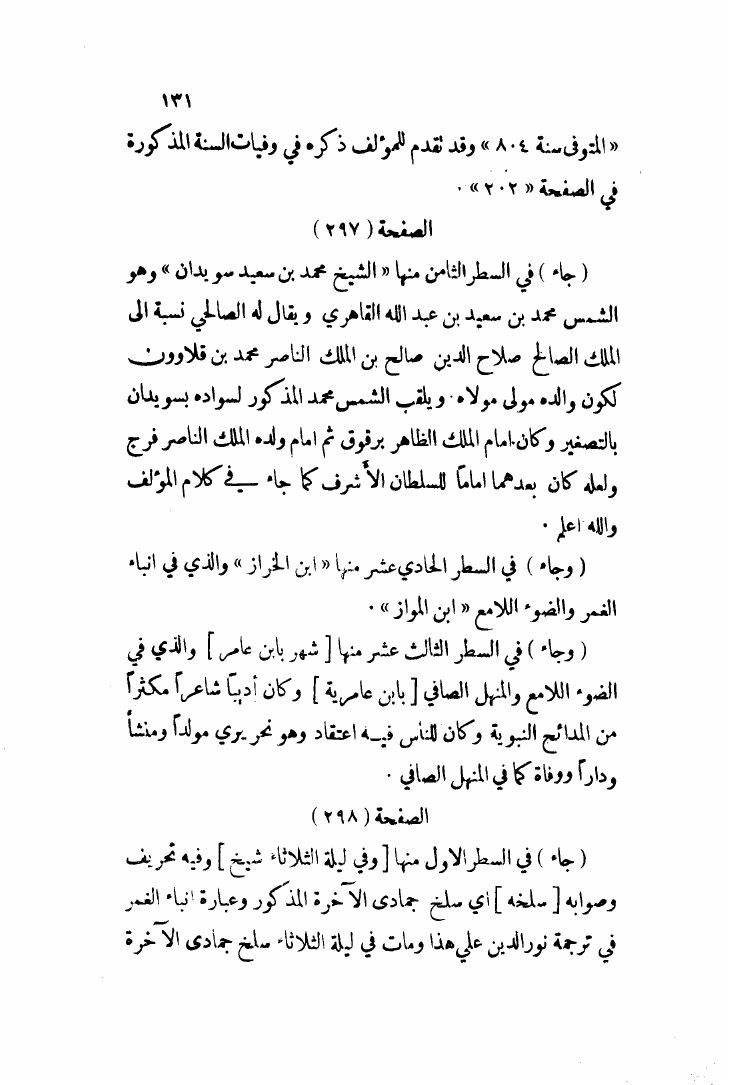 ١٣١
« المتوفى سنة ٨٠٤ » وقد تقدم للمؤلف ذكره في وفيات السنة المذكورة
في الصفحة « ٢٠٢ » .
الصفحة ( ٢٩٧ )
( جاء ) في السطر الثامن منها « الشيخ محمد بن سعيد سويدان » وهو
الشمس محمد بن سعيد بن عبد الله القاهري ويقال له الصالحي نسبة الى
الملك الصالح صلاح الدين صالح بن الملك الناصر محمد بن قلاوون
لكون والده مولى مولاه . ويلقب الشمس محمد المذكور لسواده بسويدان
بالتصغير وكان امام الملك الظاهر برقوق ثم امام ولده الملك الناصر فرج
ولعله كان بعدهما اماماً للسلطان الأشرف كما جاء في كلام المؤلف
والله اعلم .
( وجاء ) في السطر الحادي عشر منها « ابن الخراز » والذي في انباء
الغمر والضوء اللامع « ابن المواز » .
( وجاء ) في السطر الثالث عشر منها [ شهر بابن عامر ] والذي في
الضوء اللامع والمنهل الصافي [ بابن عامرية ] وكان أديباً شاعراً مكثراً
من المدائح النبوية وكان للناس فيه اعتقاد وهو نحريري مولداً ومنشأ
وداراً ووفاة كما في المنهل الصافي .
الصفحة ( ٢٩٨ )
( جاء ) في السطر الاول منها [ وفي ليلة الثلاثاء شيخ ] وفيه تحريف
وصوابه [ سلخه ] اي سلخ جمادى الآخرة المذكور وعبارة انباء الغمر
في ترجمة نور الدين علي هذا ومات في ليلة الثلاثاء سلخ جمادى الآخرة